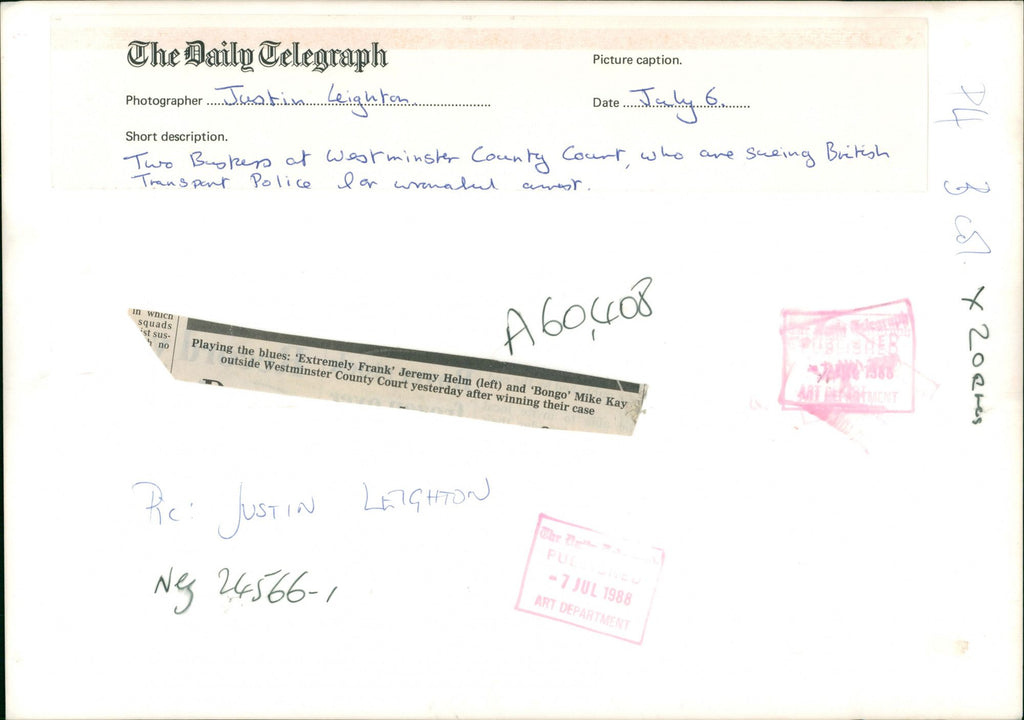 The Daily Telegraph
Picture caption.
Photographer Justin Leighton
Date July 6.
Short description.
Two Buskers at Westminster County Court, who are sueing British
Transport Police for wrongful arrest.
P4
3 col.
x 20
A60,408
in which
squads
no
Playing the blues: 'Extremely Frank' Jeremy Helm (left) and 'Bongo' Mike Kay
outside Westminster County Court yesterday after winning their case
The Daily Telegraph
PUBLISHED
1988
ART DEPARTMENT
Pic: JUSTIN LEIGHTON
Neg 24566-1
The Daily Telegraph
PUBLISHED
-7 JUL 1988
ART DEPARTMENT